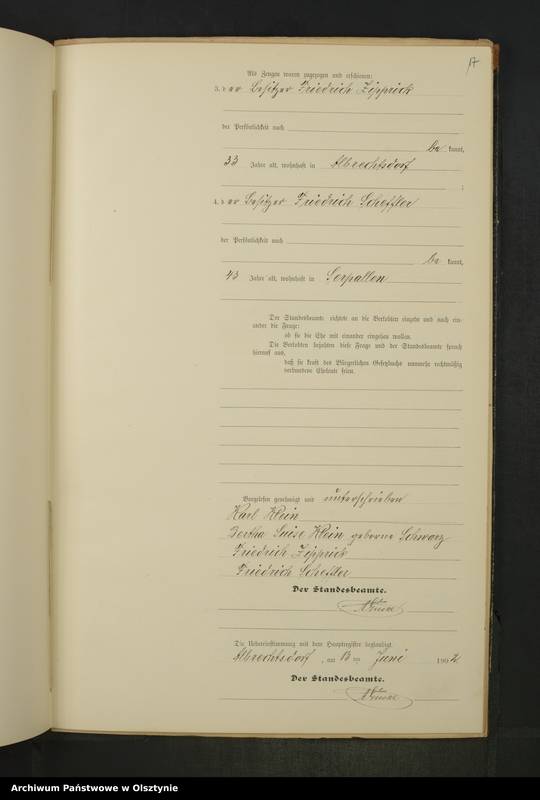 Als Zeugen waren zugezogen und erschienen:
3. der Besitzer Friedrich Zipprick
der Persönlichkeit nach
be kannt,
33 Jahre alt, wohnhaft in Albrechtsdorf
;
4. der Besitzer Friedrich Scheffler
der Persönlichkeit nach
be kannt,
43 Jahre alt, wohnhaft in Serpallen
Der Standesbeamte richtete an die Verlobten einzeln und nach ein-
ander die Frage:
ob sie die Ehe mit einander eingehen wollen.
Die Verlobten bejahten diese Frage und der Standesbeamte sprach
hierauf aus,
daß sie kraft des Bürgerlichen Gesetzbuchs nunmehr rechtmäßig
verbundene Eheleute seien.
Vorgelesen genehmigt und unterschrieben
Karl Klein
Bertha Luise Klein geborne Schwarz
Friedrich Zipprick
Friedrich Scheffler
Der Standesbeamte.
Die Uebereinstimmung mit dem Hauptregister beglaubigt
Albrechtsdorf, am 13 ten Juni 1902
Der Standesbeamte.
Archiwum Państwowe w Olsztynie